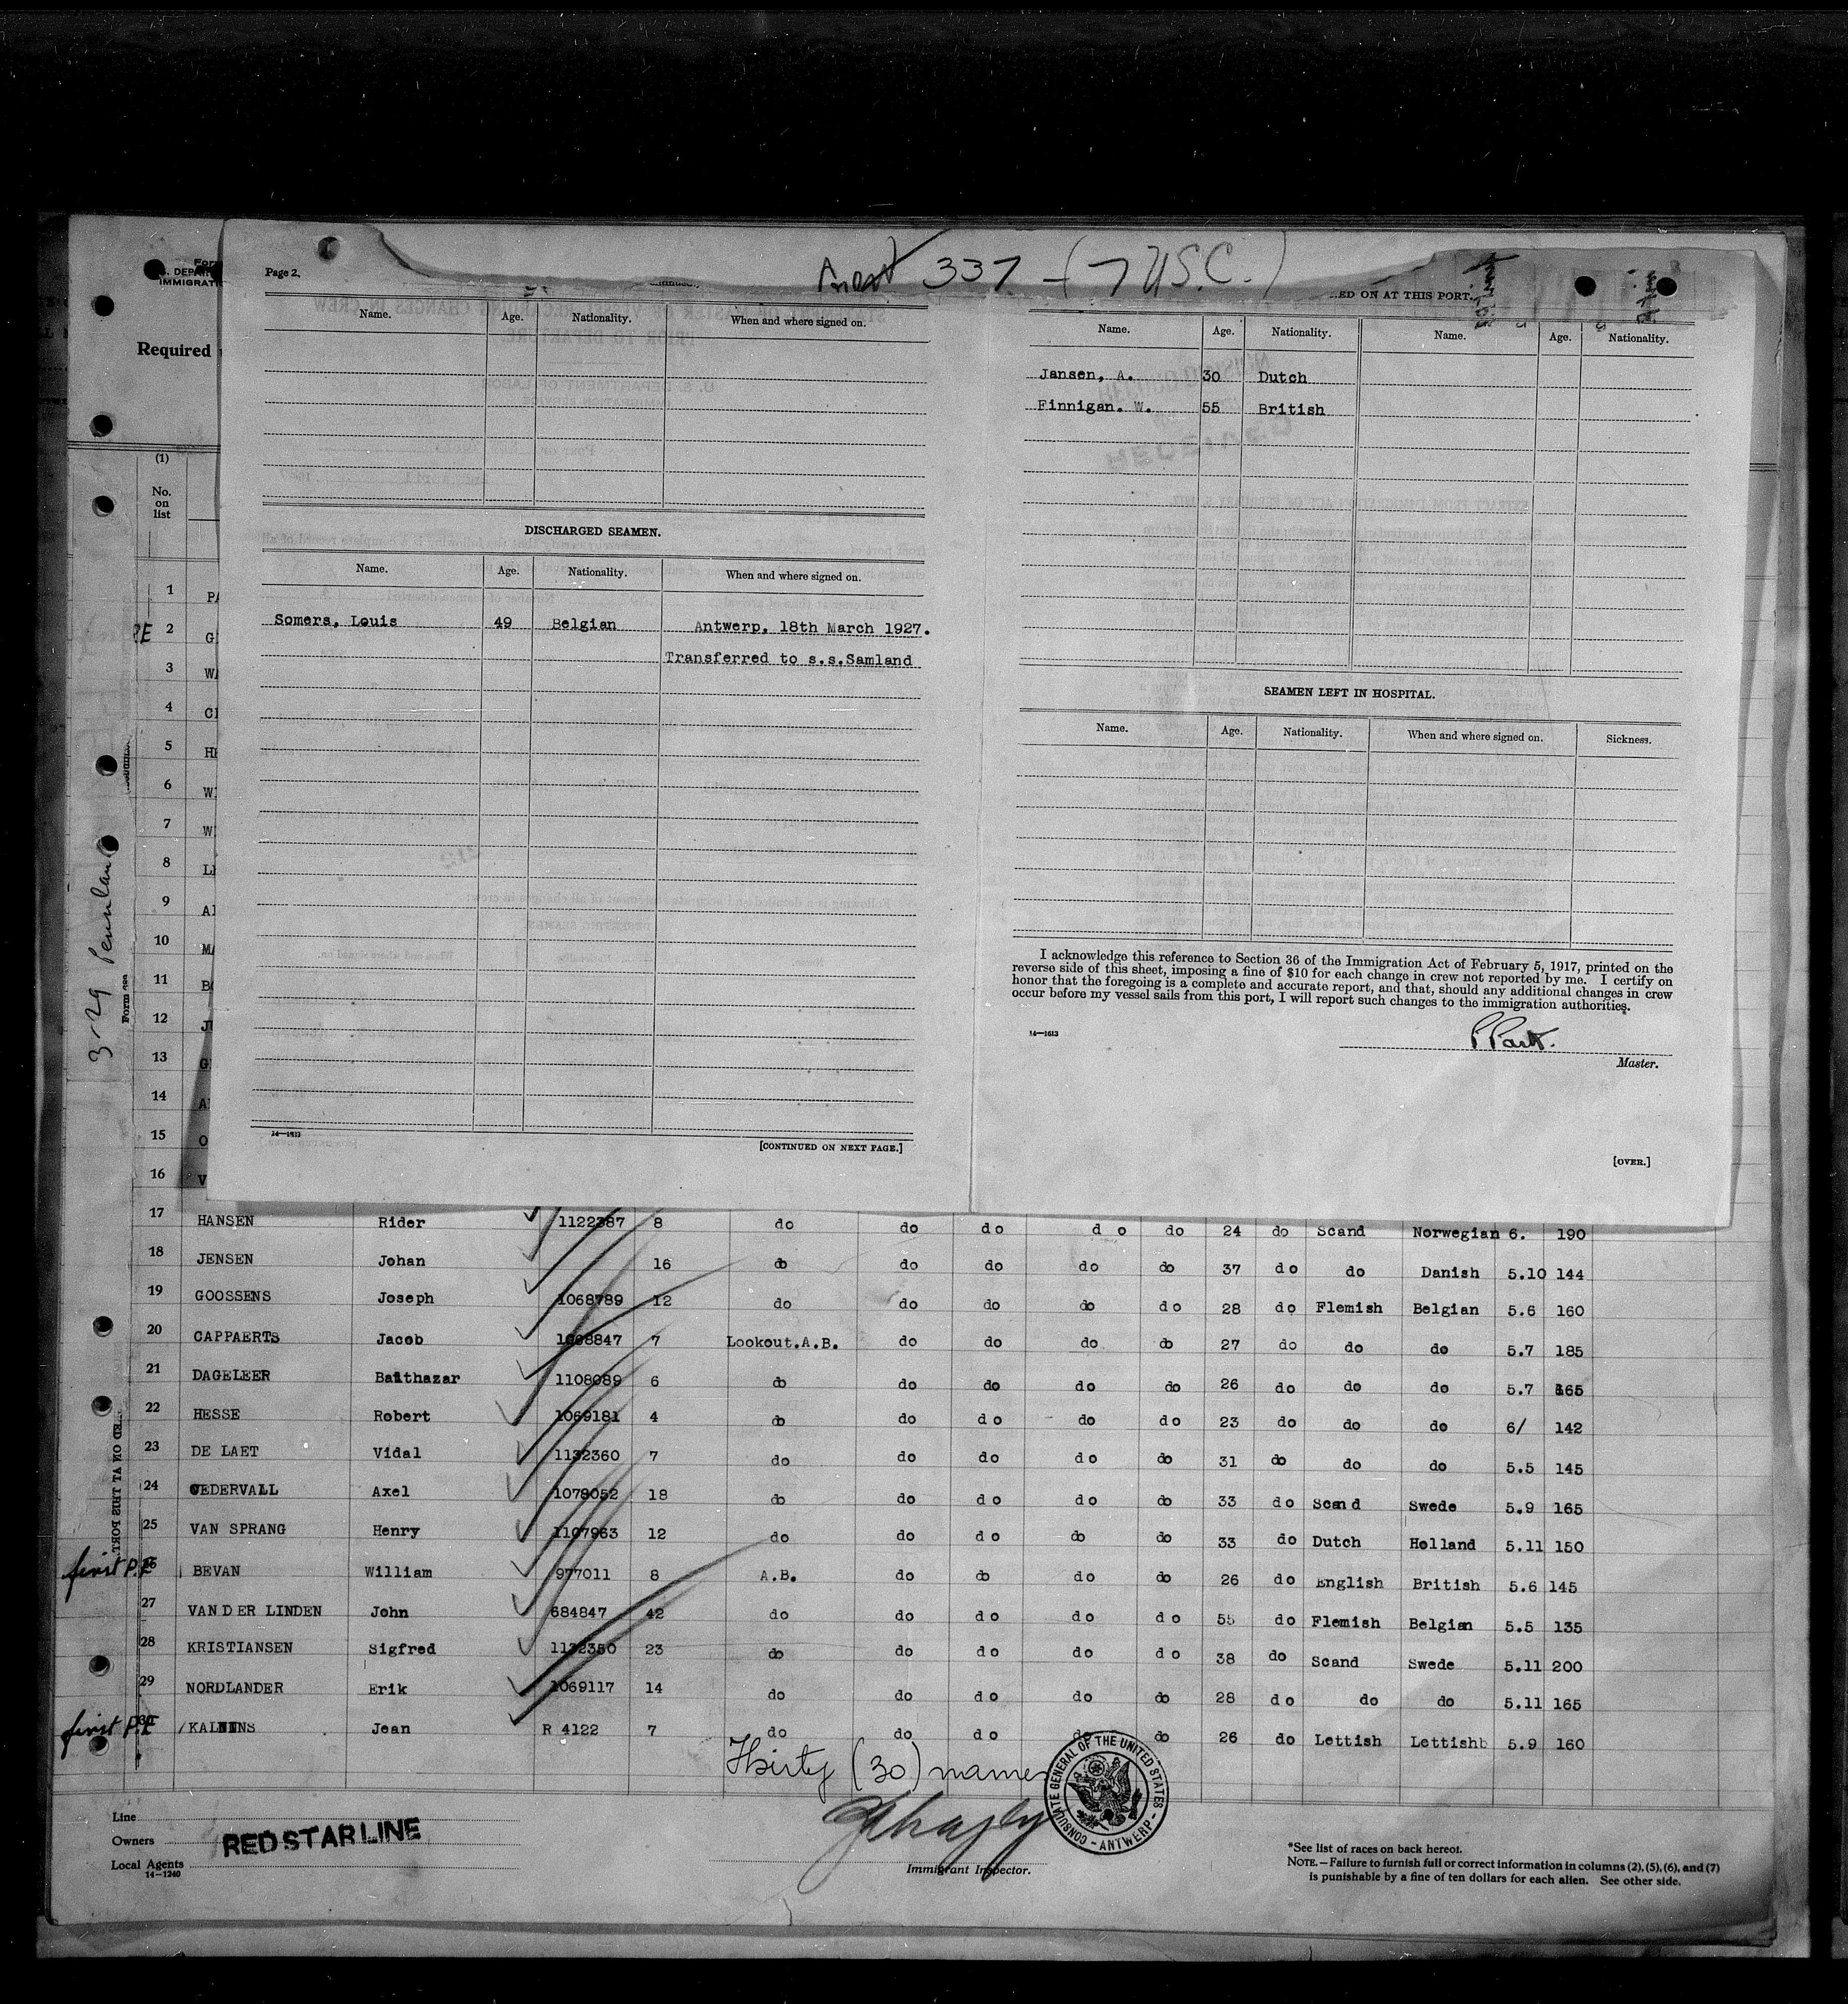 337 - (7 U.S.C.)
Page 2,
Name. Age. Nationality. When and where signed on.
DISCHARGED SEAMEN.
Name. Age. Nationality. When and where signed on.
Somers, Louis 49 Belgian Antwerp, 18th March 1927.
Transferred to s.s.Samland
14—1613
[CONTINUED ON NEXT PAGE.]
ED ON AT THIS PORT.
Name. Age. Nationality. Name. Age. Nationality.
Jansen, A. 30 Dutch
Finnigan. W. 55 British
SEAMEN LEFT IN HOSPITAL.
Name. Age. Nationality. When and where signed on. Sickness.
I acknowledge this reference to Section 36 of the Immigration Act of February 5, 1917, printed on the
reverse side of this sheet, imposing a fine of $10 for each change in crew not reported by me. I certify on
honor that the foregoing is a complete and accurate report, and that, should any additional changes in crew
occur before my vessel sails from this port, I will report such changes to the immigration authorities.
14—1613
P Park.
Master.
[OVER.]
Required
(1)
No.
on
list
1 PA
2 G
3 WA
4
5
6 W
7 W
8 L
9
10 MA
11
12
13 G
14
15 O
16 V
3-29 Pennland
17 HANSEN Rider 1122387 8 do do do do do 24 do Scand Norwegian 6. 190
18 JENSEN Johan 16 do do do do do 37 do do Danish 5.10 144
19 GOOSSENS Joseph 1068789 12 do do do do do 28 do Flemish Belgian 5.6 160
20 CAPPAERTS Jacob 1068847 7 Lookout.A.B. do do do do 27 do do do 5.7 185
21 DAGELEER Balthazar 1108089 6 do do do do do 26 do do do 5.7 165
22 HESSE Robert 1069181 4 do do do do do 23 do do do 6/ 142
23 DE LAET Vidal 1132360 7 do do do do do 31 do do do 5.5 145
24 CEDERVALL Axel 1078052 18 do do do do do 33 do Scand Swede 5.9 165
25 VAN SPRANG Henry 1107963 12 do do do do do 33 do Dutch Holland 5.11 150
first P.E 26 BEVAN William 977011 8 A.B. do do do do 26 do English British 5.6 145
27 VAN DER LINDEN John 684847 42 do do do do do 55 do Flemish Belgian 5.5 135
28 KRISTIANSEN Sigfred 1132350 23 do do do do do 38 do Scand Swede 5.11 200
29 NORDLANDER Erik 1069117 14 do do do do do 28 do do do 5.11 165
first P.E 30 KALNINS Jean R 4122 7 do do do do do 26 do Lettish Lettishb 5.9 160
Thirty (30) names
CONSULATE GENERAL OF THE UNITED STATES - ANTWERP -
Line
Owners RED STAR LINE
Local Agents
14—1240
Immigrant Inspector.
*See list of races on back hereof.
NOTE.—Failure to furnish full or correct information in columns (2), (5), (6), and (7)
is punishable by a fine of ten dollars for each alien. See other side.